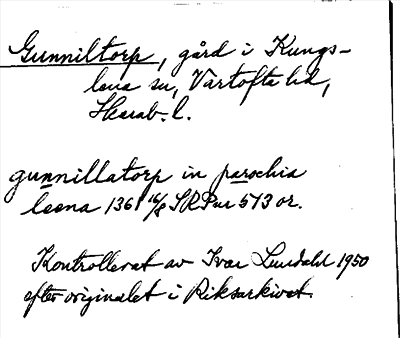 Gunniltorp, gård i Kungs-
lena sn, Vartofta hd,
Skarab. l.
gunnillatorp in parochia
leona 1361 16/8 SRPur 573 or.
Kontrollerat av Ivar Lundahl 1950
efter originalet i Riksarkivet.